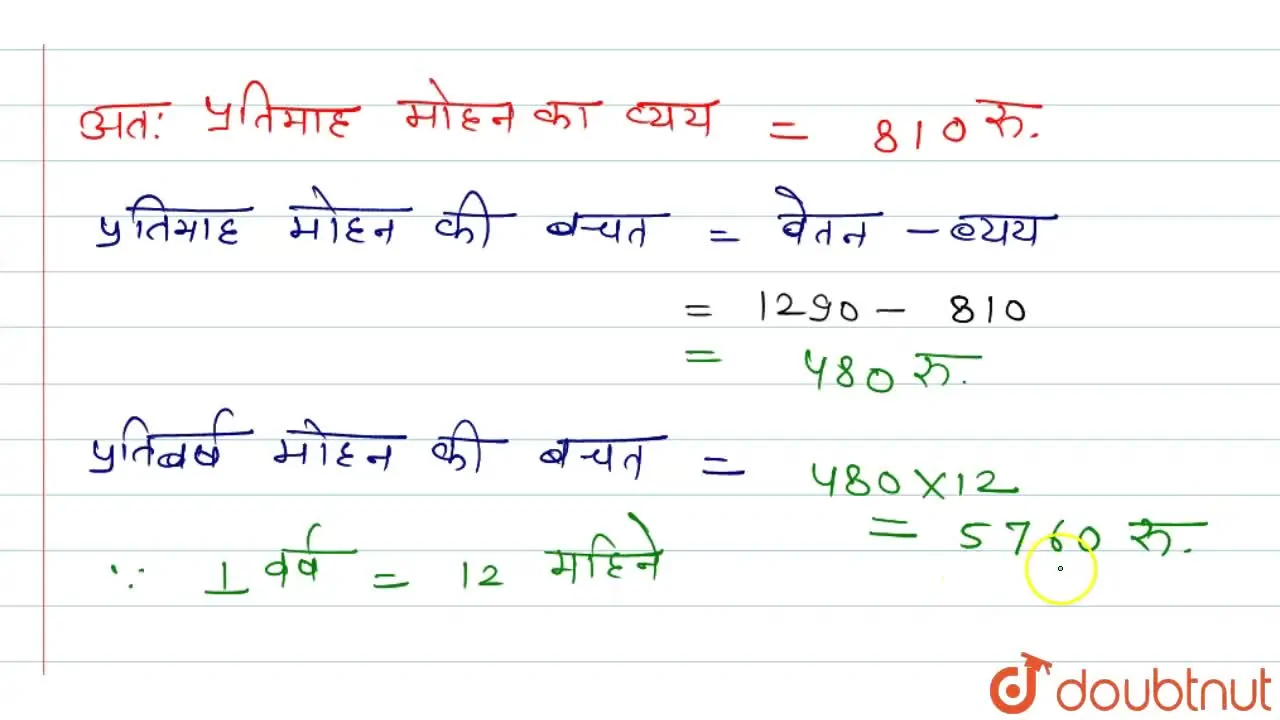 अतः प्रतिमाह मोहन का व्यय = 810 रु.
प्रतिमाह मोहन की बचत = वेतन - व्यय
= 1290 - 810
= 480 रु.
प्रतिवर्ष मोहन की बचत = 480 × 12
= 5760 रु.
∵ 1 वर्ष = 12 महिने
doubtnut